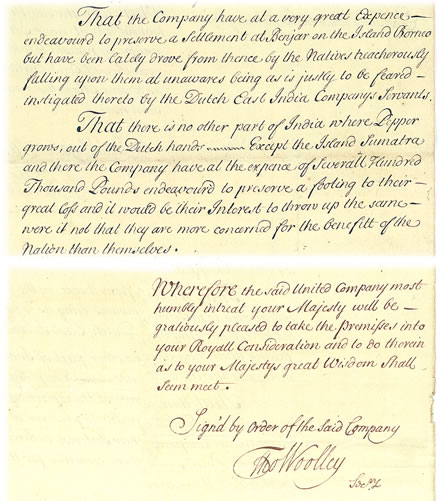 That the Company have at a very great Expence –
endeavourd to preserve a Settlement at Benjar on the Island Borneo
but have been Lately drove from thence by the Natives treacherously
falling upon them at unawares being as is justly to be feared –
instigated thereto by the Dutch East India Companys Servants.
That there is no other part of India where Pepper
grows, out of the Dutch hands ~~~ Except the Island Sumatra
and there the Company have at the expence of Severall Hundred
Thousand Pounds endeavourd to preserve a footing to their –
great Loss and it would be their Interest to throw up the same –
were it not that they are more concerned for the benefitt of the
Nation than themselves.
Wherefore the said United Company most
humbly intreat your Majesty will be –
gratiously pleased to take the Premisses into
your Royall Consideration and to do therein
as to your Majestys great Wisdom Shall
Seem meet.
Sign'd by Order of the Said Company
Tho Woolley
Secry